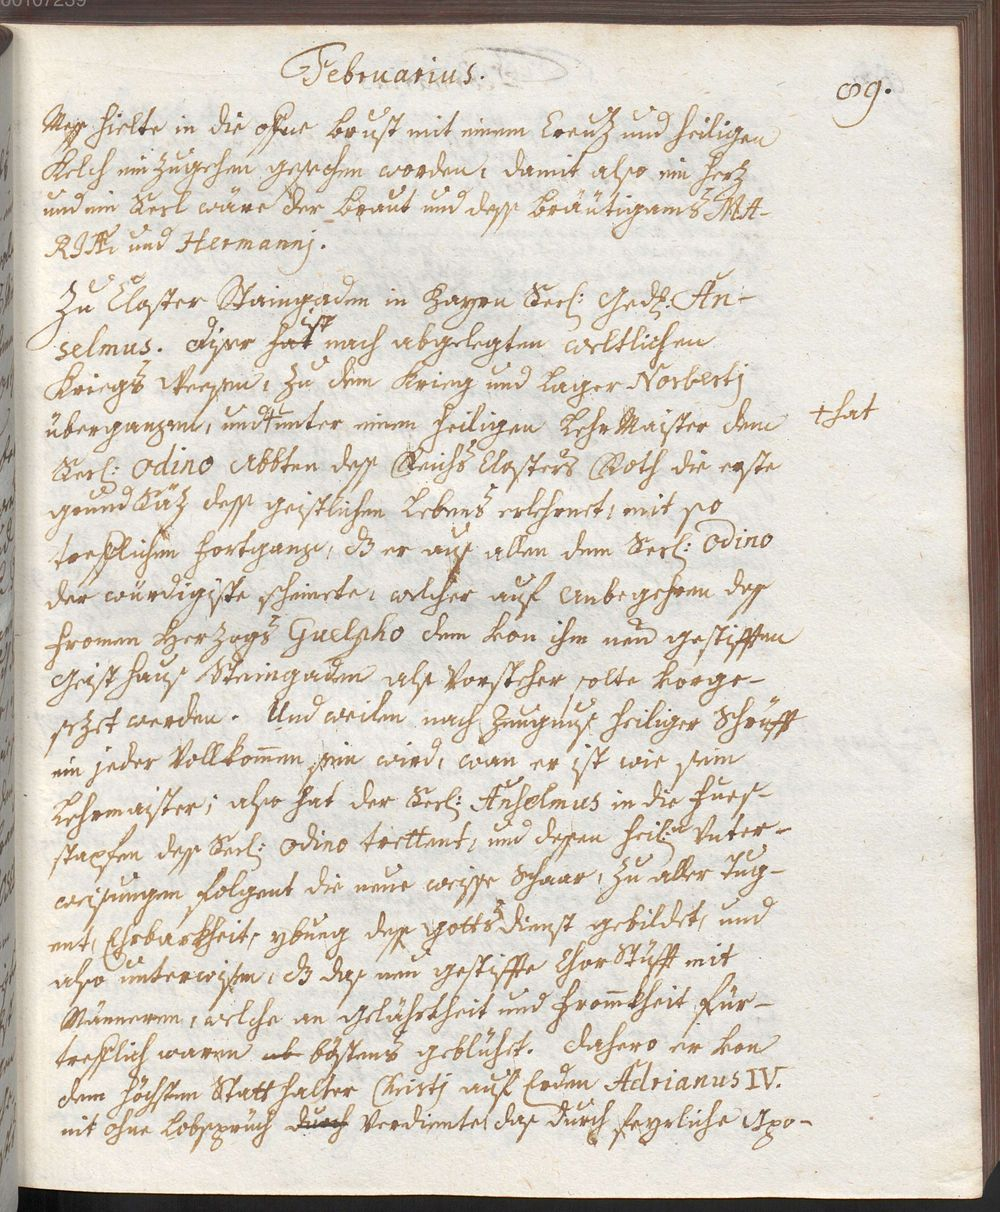 00107239
Februarius.
89.
Mess hielte in die ofne brust mit einem Creutz und heiligen
Kelch einzugehen gesechen worden: damit also ein Hertz
und ein Seel wäre der braut und dess bräutigams MA-
RIÆ und Hermannj.
Zu Closter Staingaden in Bayrn Seel: Gedh: An-
selmus. diser hat ist nach abgelegten weltlichen
Kriegs Weesen, zu dem Krieg und Lager Norbertj
übergangen, und + unter einem heiligen LehrMaister dem
+ hat
Seel: Odino Abbten dess Reichs Closters Roth die erste
grund Säz dess geistlichen Lebens erlehrnet, mit so
trefflichen fortgang, dz er auss allen dem Seel: Odino
der würdigiste scheinete, welcher auf anbegehren dess
fromen Herzogs Guelpho dem von ihm neu gestifften
Geisthauss Steingaden alss Vorsteher solte vorge-
sezet werden. Und weilen nach Zeugnuss heiliger Schrifft
ein jeder Vollkomen sein wird, wan er ist wie sein
Lehrmaister; also hat der Seel: Anshelmus in die Fues-
stapfen dess Seel: Odino trettent, und dessen heil: Unter-
weisungen folgent die neue weisse Schaar, zu aller Tug-
ent, Ehrbarkheit, ybung dess Gottsdienst gebildet, und
also unterwisen, dz das neu gestiffte ChorStüfft mit
Männeren, welche an Gelährtheit und Fromkheit für-
trefflich waren bästens geblühet. Dahero er von
dem höchsten Statthalter Christj auf Erden Adrianus IV.
nit ohne Lobsprüch durch Verdiente, das durch feyrliche Apo-